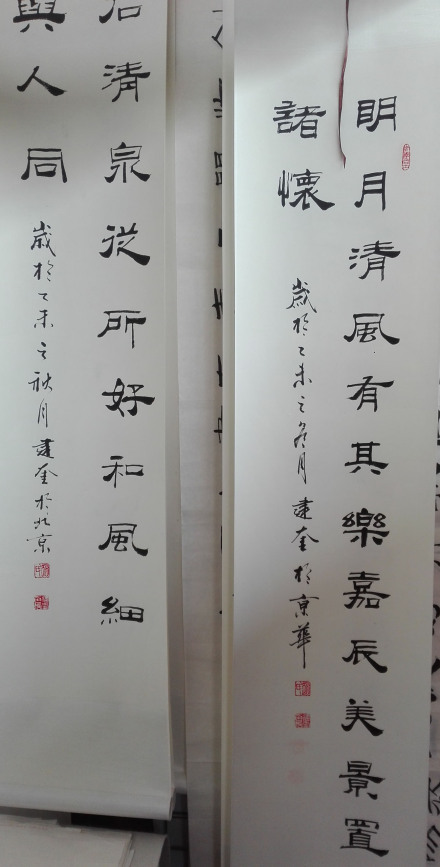 明月清風有其樂嘉辰美景置
諸懷
歲於乙未之冬月建奎於京華
石清泉從所好和風細
與人同
歲於乙未之秋月建奎於北京